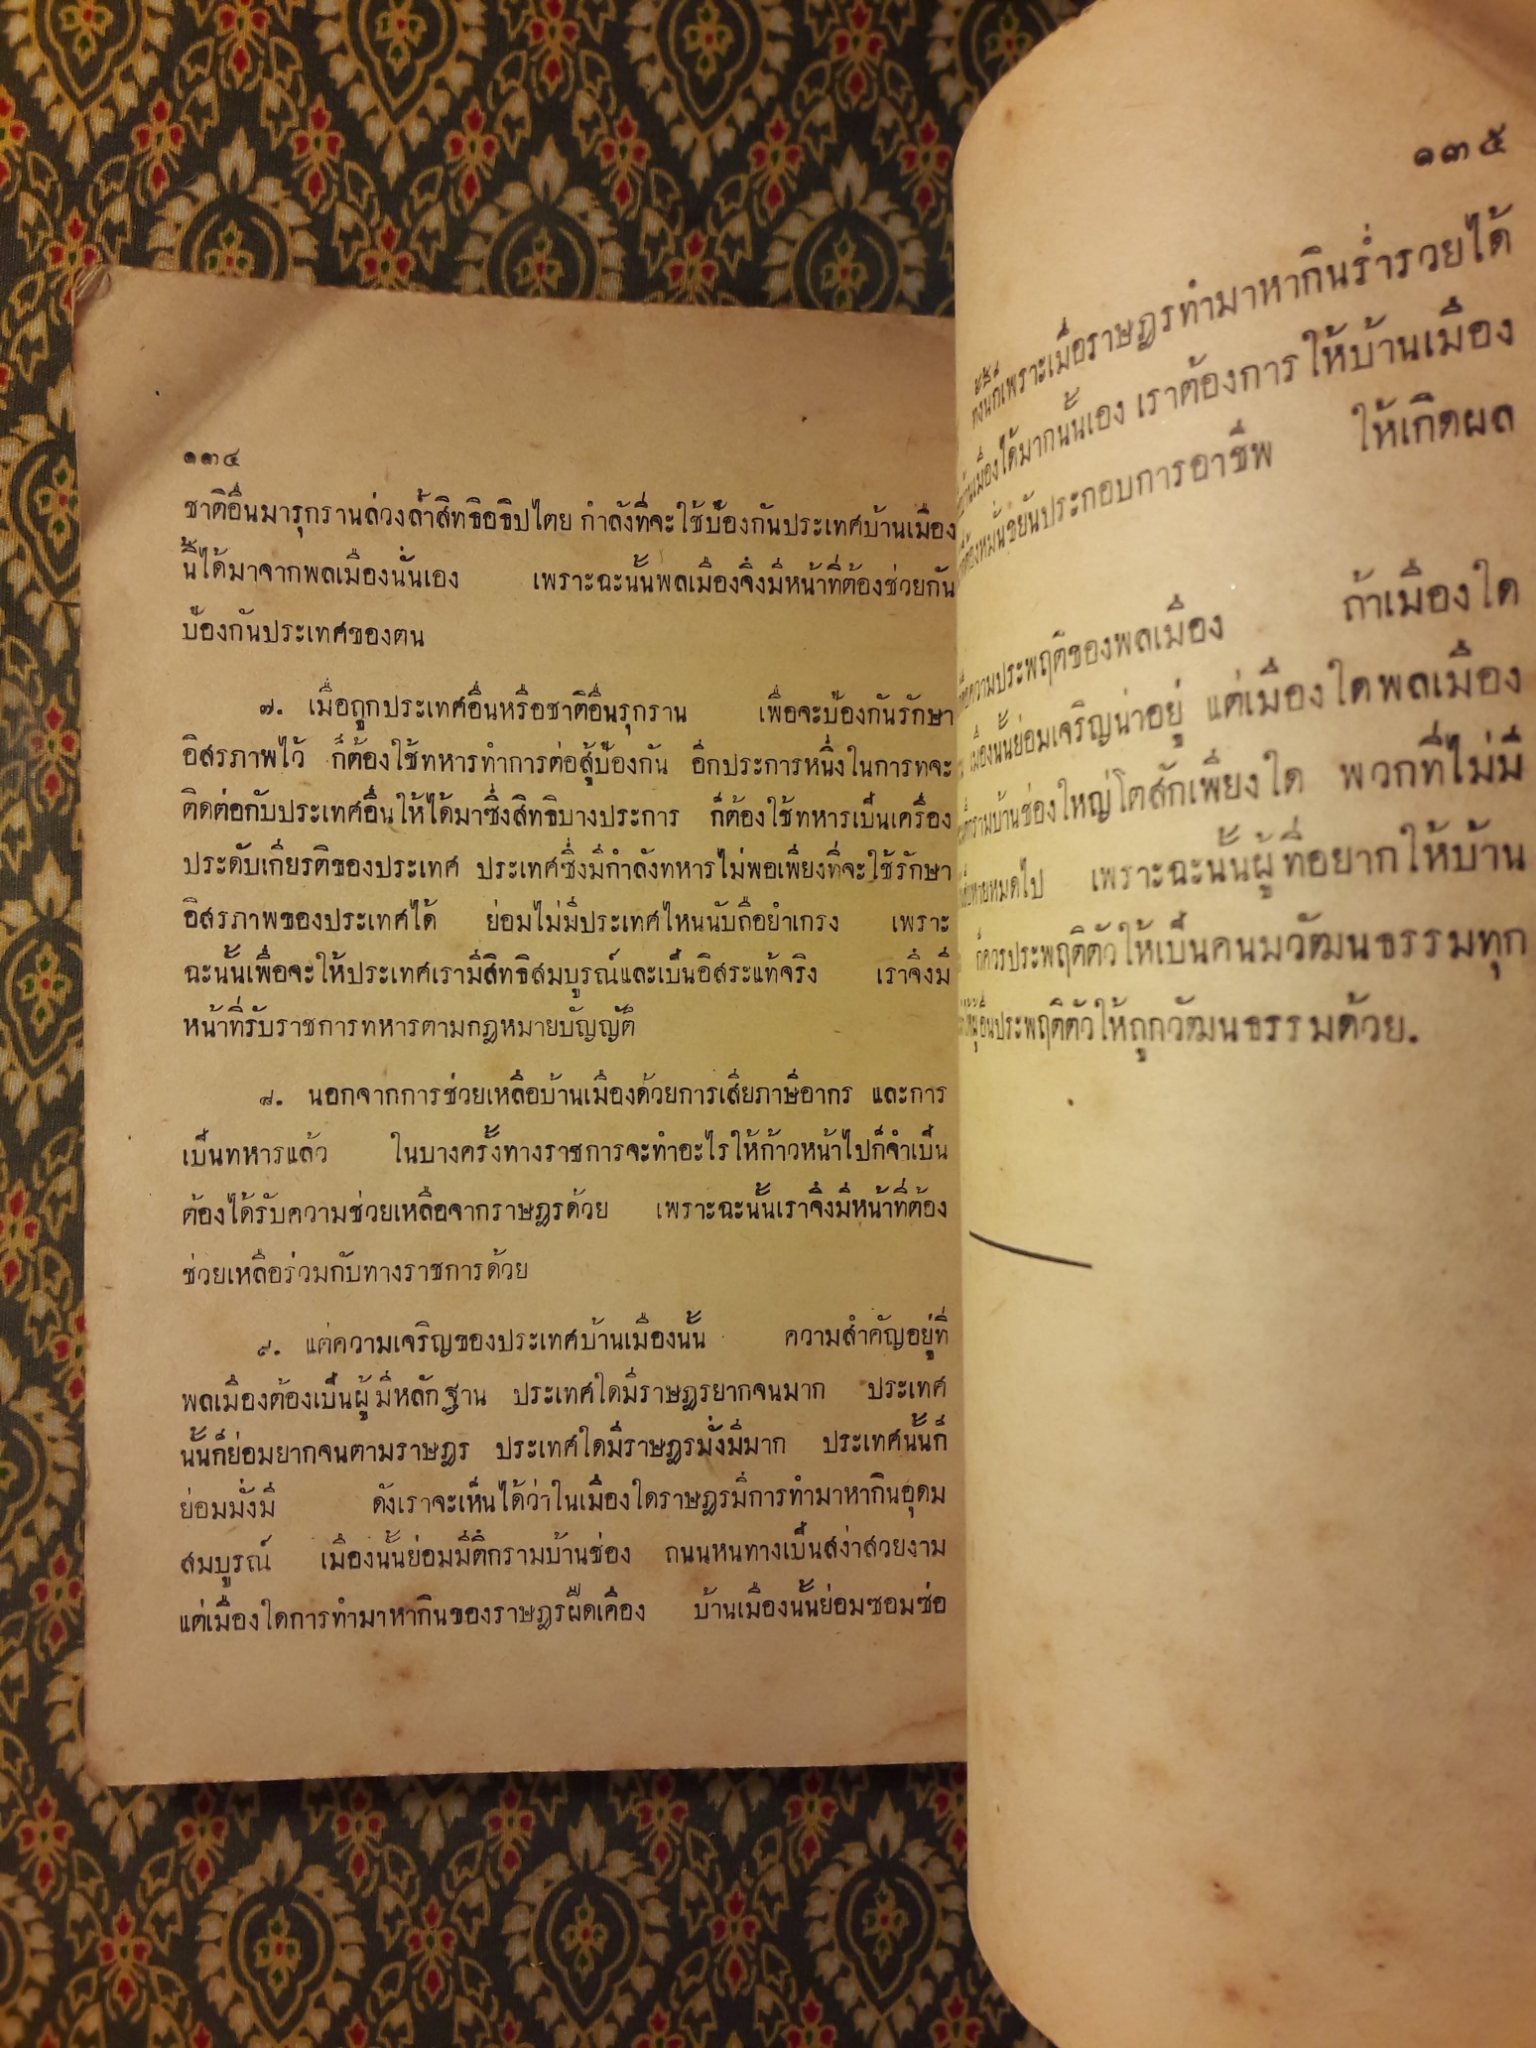 ๑๓๔
ชาติอื่นมารุกรานล่วงล้ำสิทธิอธิปไตย กำลังที่จะใช้ป้องกันประเทศบ้านเมือง
นี้ได้มาจากพลเมืองนั่นเอง เพราะฉะนั้นพลเมืองจึงมีหน้าที่ต้องช่วยกัน
ป้องกันประเทศของตน
๗. เมื่อถูกประเทศอื่นหรือชาติอื่นรุกราน เพื่อจะป้องกันรักษา
อิสรภาพไว้ ก็ต้องใช้ทหารทำการต่อสู้ป้องกัน อีกประการหนึ่งในการทจะ
ติดต่อกับประเทศอื่นให้ได้มาซึ่งสิทธิบางประการ ก็ต้องใช้ทหารเป็นเครื่อง
ประดับเกียรติของประเทศ ประเทศซึ่งมีกำลังทหารไม่พอเพียงที่จะใช้รักษา
อิสรภาพของประเทศได้ ย่อมไม่มีประเทศไหนนับถือยำเกรง เพราะ
ฉะนั้นเพื่อจะให้ประเทศเรามีสิทธิสมบูรณ์และเป็นอิสระแท้จริง เราจึงมี
หน้าที่รับราชการทหารตามกฎหมายบัญญัติ
๘. นอกจากการช่วยเหลือบ้านเมืองด้วยการเสียภาษีอากร และการ
เป็นทหารแล้ว ในบางครั้งทางราชการจะทำอะไรให้ก้าวหน้าไปก็จำเป็น
ต้องได้รับความช่วยเหลือจากราษฎรด้วย เพราะฉะนั้นเราจึงมีหน้าที่ต้อง
ช่วยเหลือร่วมกับทางราชการด้วย
๙. แต่ความเจริญของประเทศบ้านเมืองนั้น ความสำคัญอยู่ที่
พลเมืองต้องเป็นผู้มีหลักฐาน ประเทศใดมีราษฎรยากจนมาก ประเทศ
นั้นก็ย่อมยากจนตามราษฎร ประเทศใดมีราษฎรมั่งมีมาก ประเทศนั้นก็
ย่อมมั่งมี ดังเราจะเห็นได้ว่าในเมืองใดราษฎรมีการทำมาหากินอุดม
สมบูรณ์ เมืองนั้นย่อมมีตึกรามบ้านช่อง ถนนหนทางเป็นสง่าสวยงาม
แต่เมืองใดการทำมาหากินของราษฎรฝืดเคือง บ้านเมืองนั้นย่อมซอมซ่อ
๑๓๕
ดังนี้ก็เพราะเมื่อราษฎรทำมาหากินร่ำรวยได้
บ้านเมืองได้มากนั้นเอง เราต้องการให้บ้านเมือง
ต้องหมั่นขยันประกอบการอาชีพ ให้เกิดผล
ความประพฤติของพลเมือง ถ้าเมืองใด
เมืองนั้นย่อมเจริญน่าอยู่ แต่เมืองใดพลเมือง
บ้านช่องใหญ่โตสักเพียงใด พวกที่ไม่มี
หมดไป เพราะฉะนั้นผู้ที่อยากให้บ้าน
ก็ควรประพฤติตัวให้เป็นคนมีวัฒนธรรมทุก
ผู้อื่นประพฤติตัวให้ถูกวัฒนธรรมด้วย.